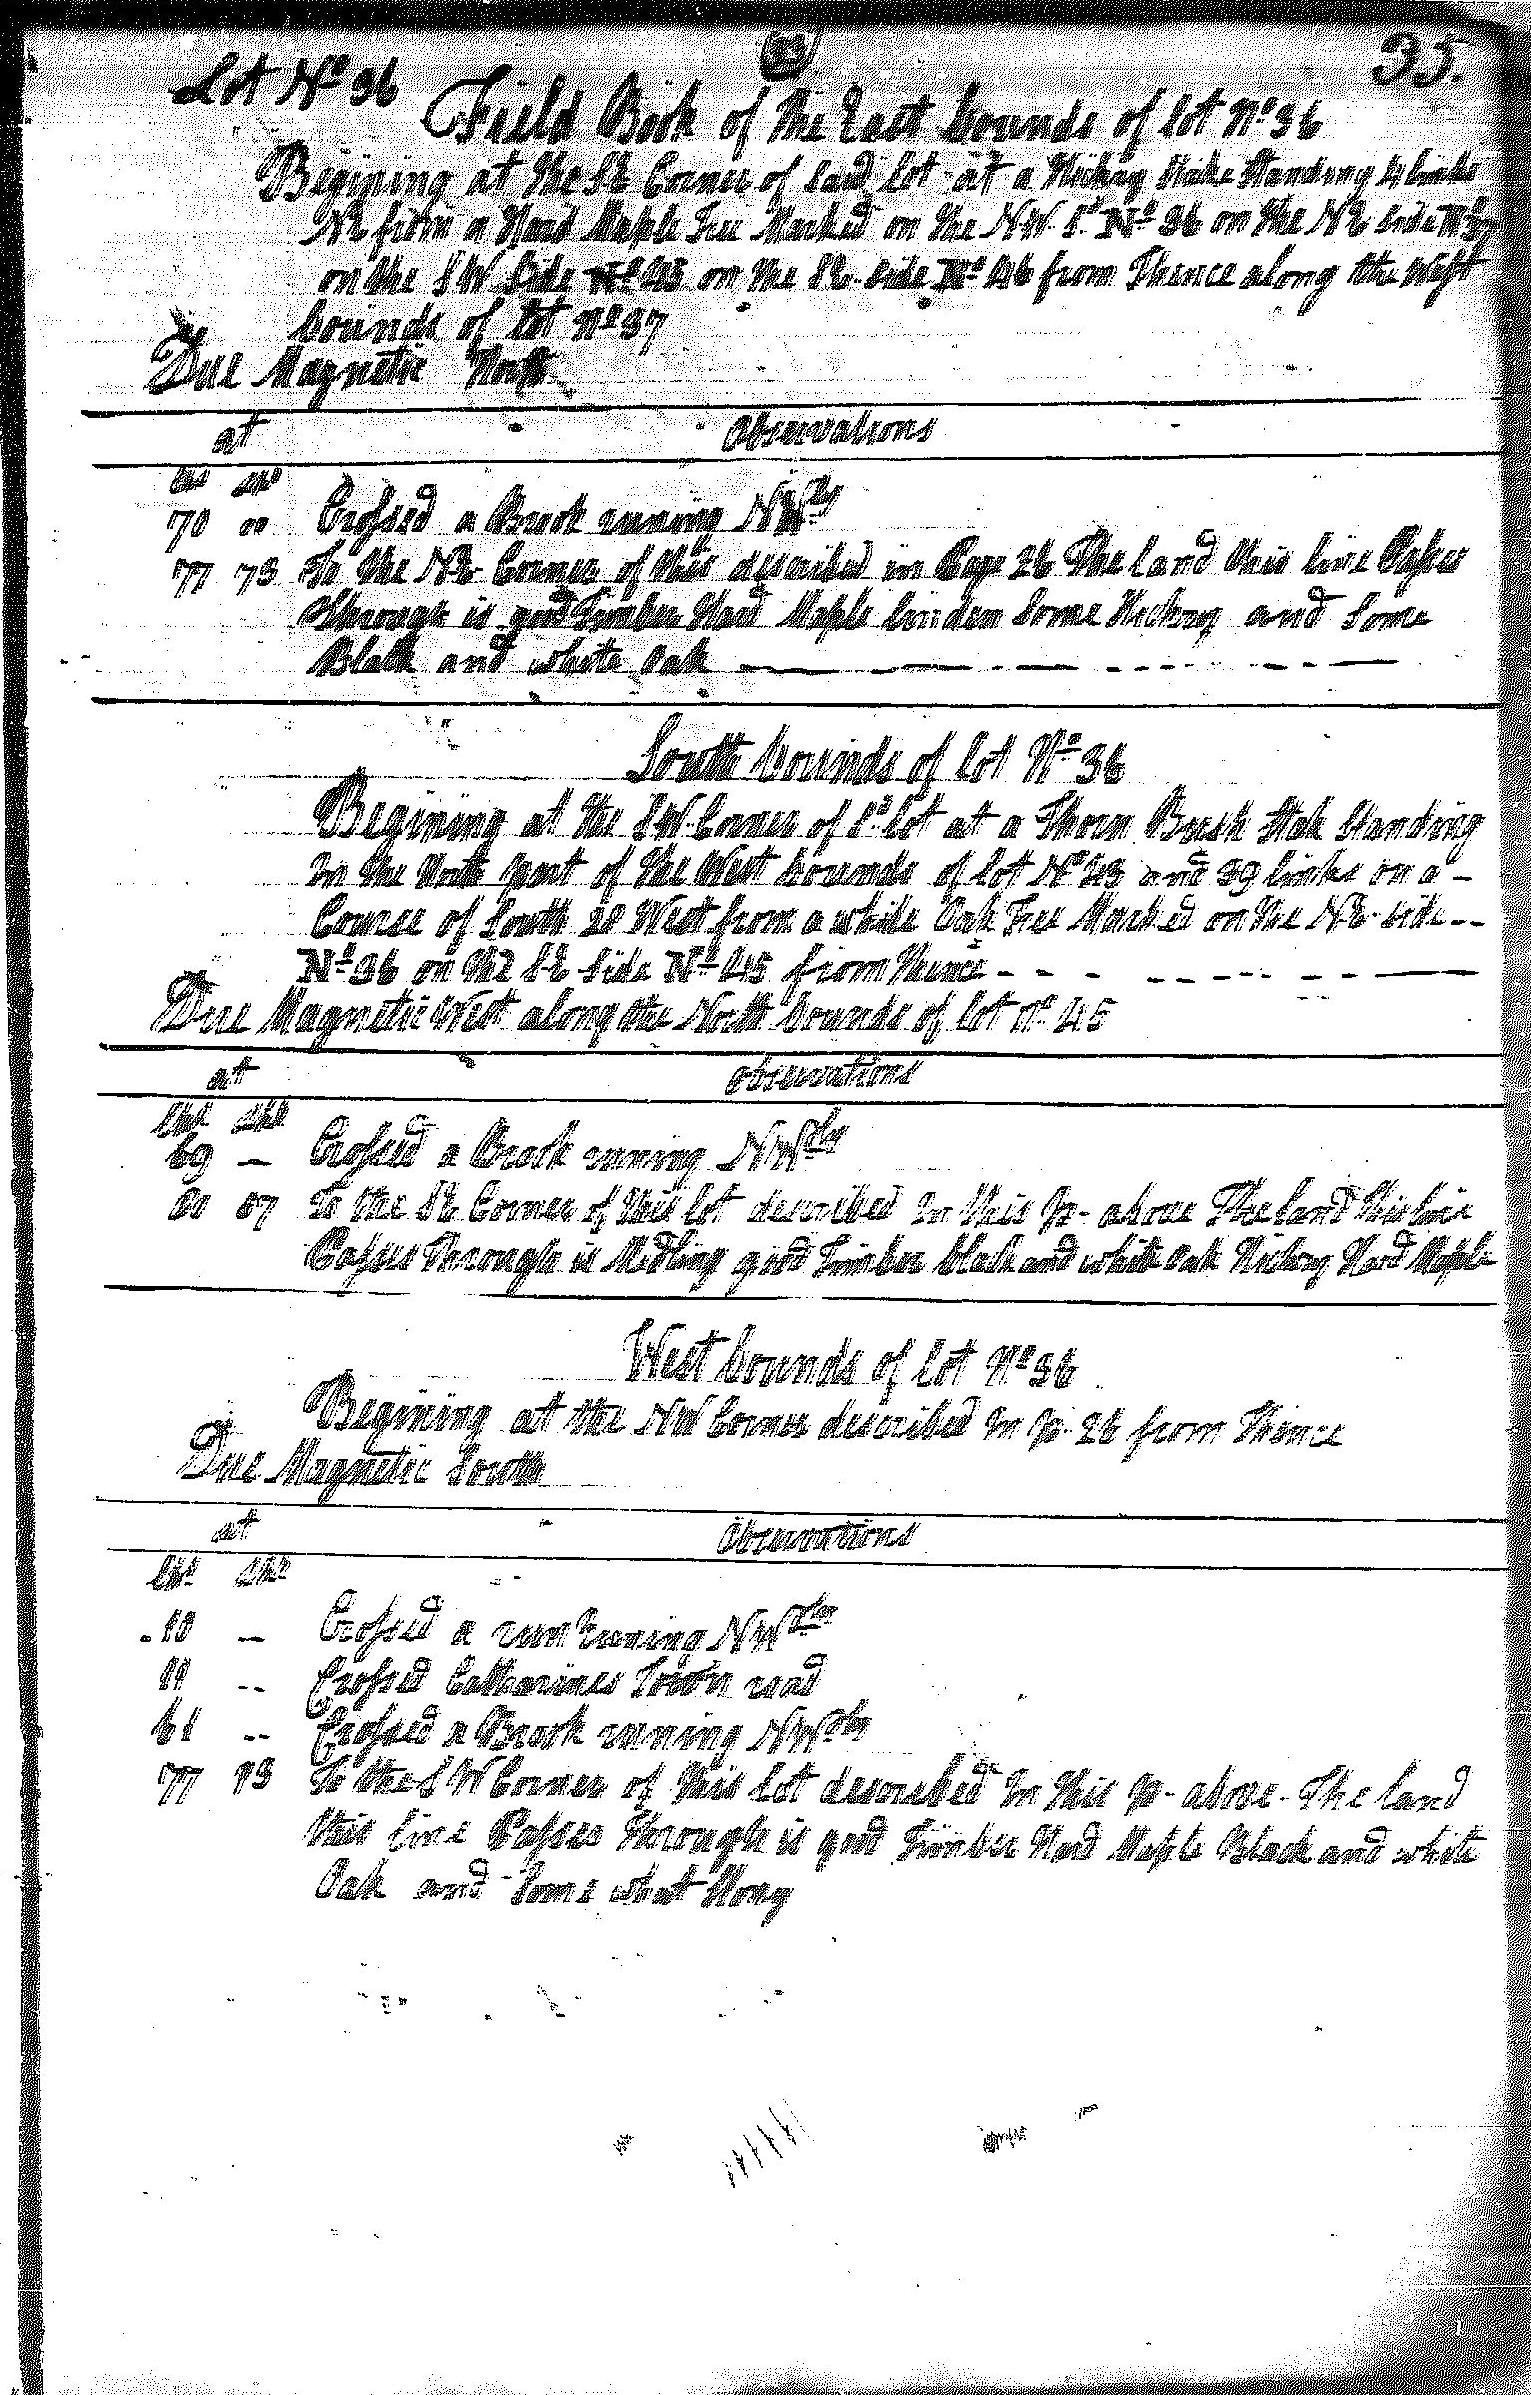 35.
Lot Nº 36
Field Book of the East bounds of lot Nº 36
Begining at the SE Corner of said lot at a Hickory Stake Standing 4 links
NE from a Hard Maple Tree Marked on the NW. Sd. Nº 36 on the NE side Nº 37
on the SW Side Nº 45 on the SE side Nº 46 from Thence along the West
bounds of lot Nº 37
Due Magnetic North
at Observations
Chs Lks
70 00 Crossed a Brook runing NWtly
77 73 To the NE Corner of this described in Page 26 The land this line Passes
through is good Timber Hard Maple linden Some Hickory and Some
Black and white Oak
South bounds of lot Nº 36
Begining at the SW Corner of Sd lot at a Thorn Bush Stak Standing
in the North part of the West bounds of lot Nº 45 and 39 links on a
Course of South 20 West from a white Oak Tree Marked on the NE side
Nº 36 on the SE Side Nº 45 from Thence
Due Magnetic West along the North bounds of lot Nº 45
at Observations
Chs Lks
69 — Crossed a Brook runing NWtly
07 To the SE Corner of this lot described in this p. above The land this line
Passes Through is Midling good Timber black and white Oak Hickory Hard Maple
West bounds of lot Nº 36
Begining at the NW Corner described in p. 26 from Thence
Due Magnetic South
at Observations
Chs Lks
10 — Crossed a run runing NWtly
11 -- Crossed Catharines Town road
61 -- Crossed a Brook runing NWtly
77 73 To the SW Corner of this lot described in this p. above. The land
this line Passes Through is good Timber Hard Maple Black and white
Oak and Some what Stony